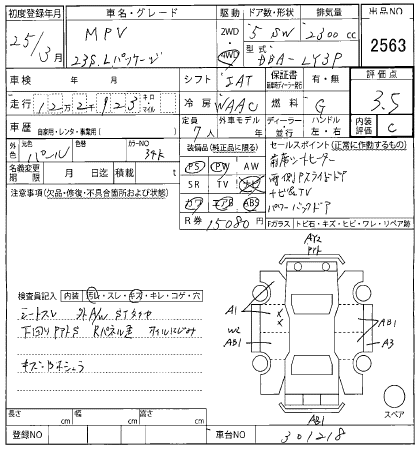 初度登録年月 車名・グレード 駆動 ドア数・形状 排気量 出品NO
25年 3月 MPV 2WD 4WD 5 SW 2300cc 2563
23S.Lパッケージ 型式 DBA-LY3P
車検 年 月 シフト IAT 保証書 有・無 評価点
走行 12万2千923 キロ マイル 冷房 WAAC 燃料 G 3.5
車歴 自家用・レンタ・事業用( ) 定員 7人 外車モデル 年 ディーラー 並行 ハンドル 左・右 内装評価 C
外色 パール 色替 カラーNO 34K 装備品(純正品に限る) セールスポイント(正常に作動するもの)
名義変更期限 月 日迄 積載 t PS PW AW 前席シートヒーター
注意事項(欠品・修復・不具合箇所および状態) SR TV ナビ 両側Pスライドドア
カワ エアB ABS ナビ&TV
R券 15080円 パワーバックドア
Fガラス トビ石・キズ・ヒビ・ワレ・リペア跡
検査員記入 内装 汚れ・スレ・キズ・キレ・コゲ・穴
シートスレ
下回り
A1
AB1
AB1
A3
AB1
スペア
長さ cm 幅 cm 高さ cm
登録NO 車台NO 301218